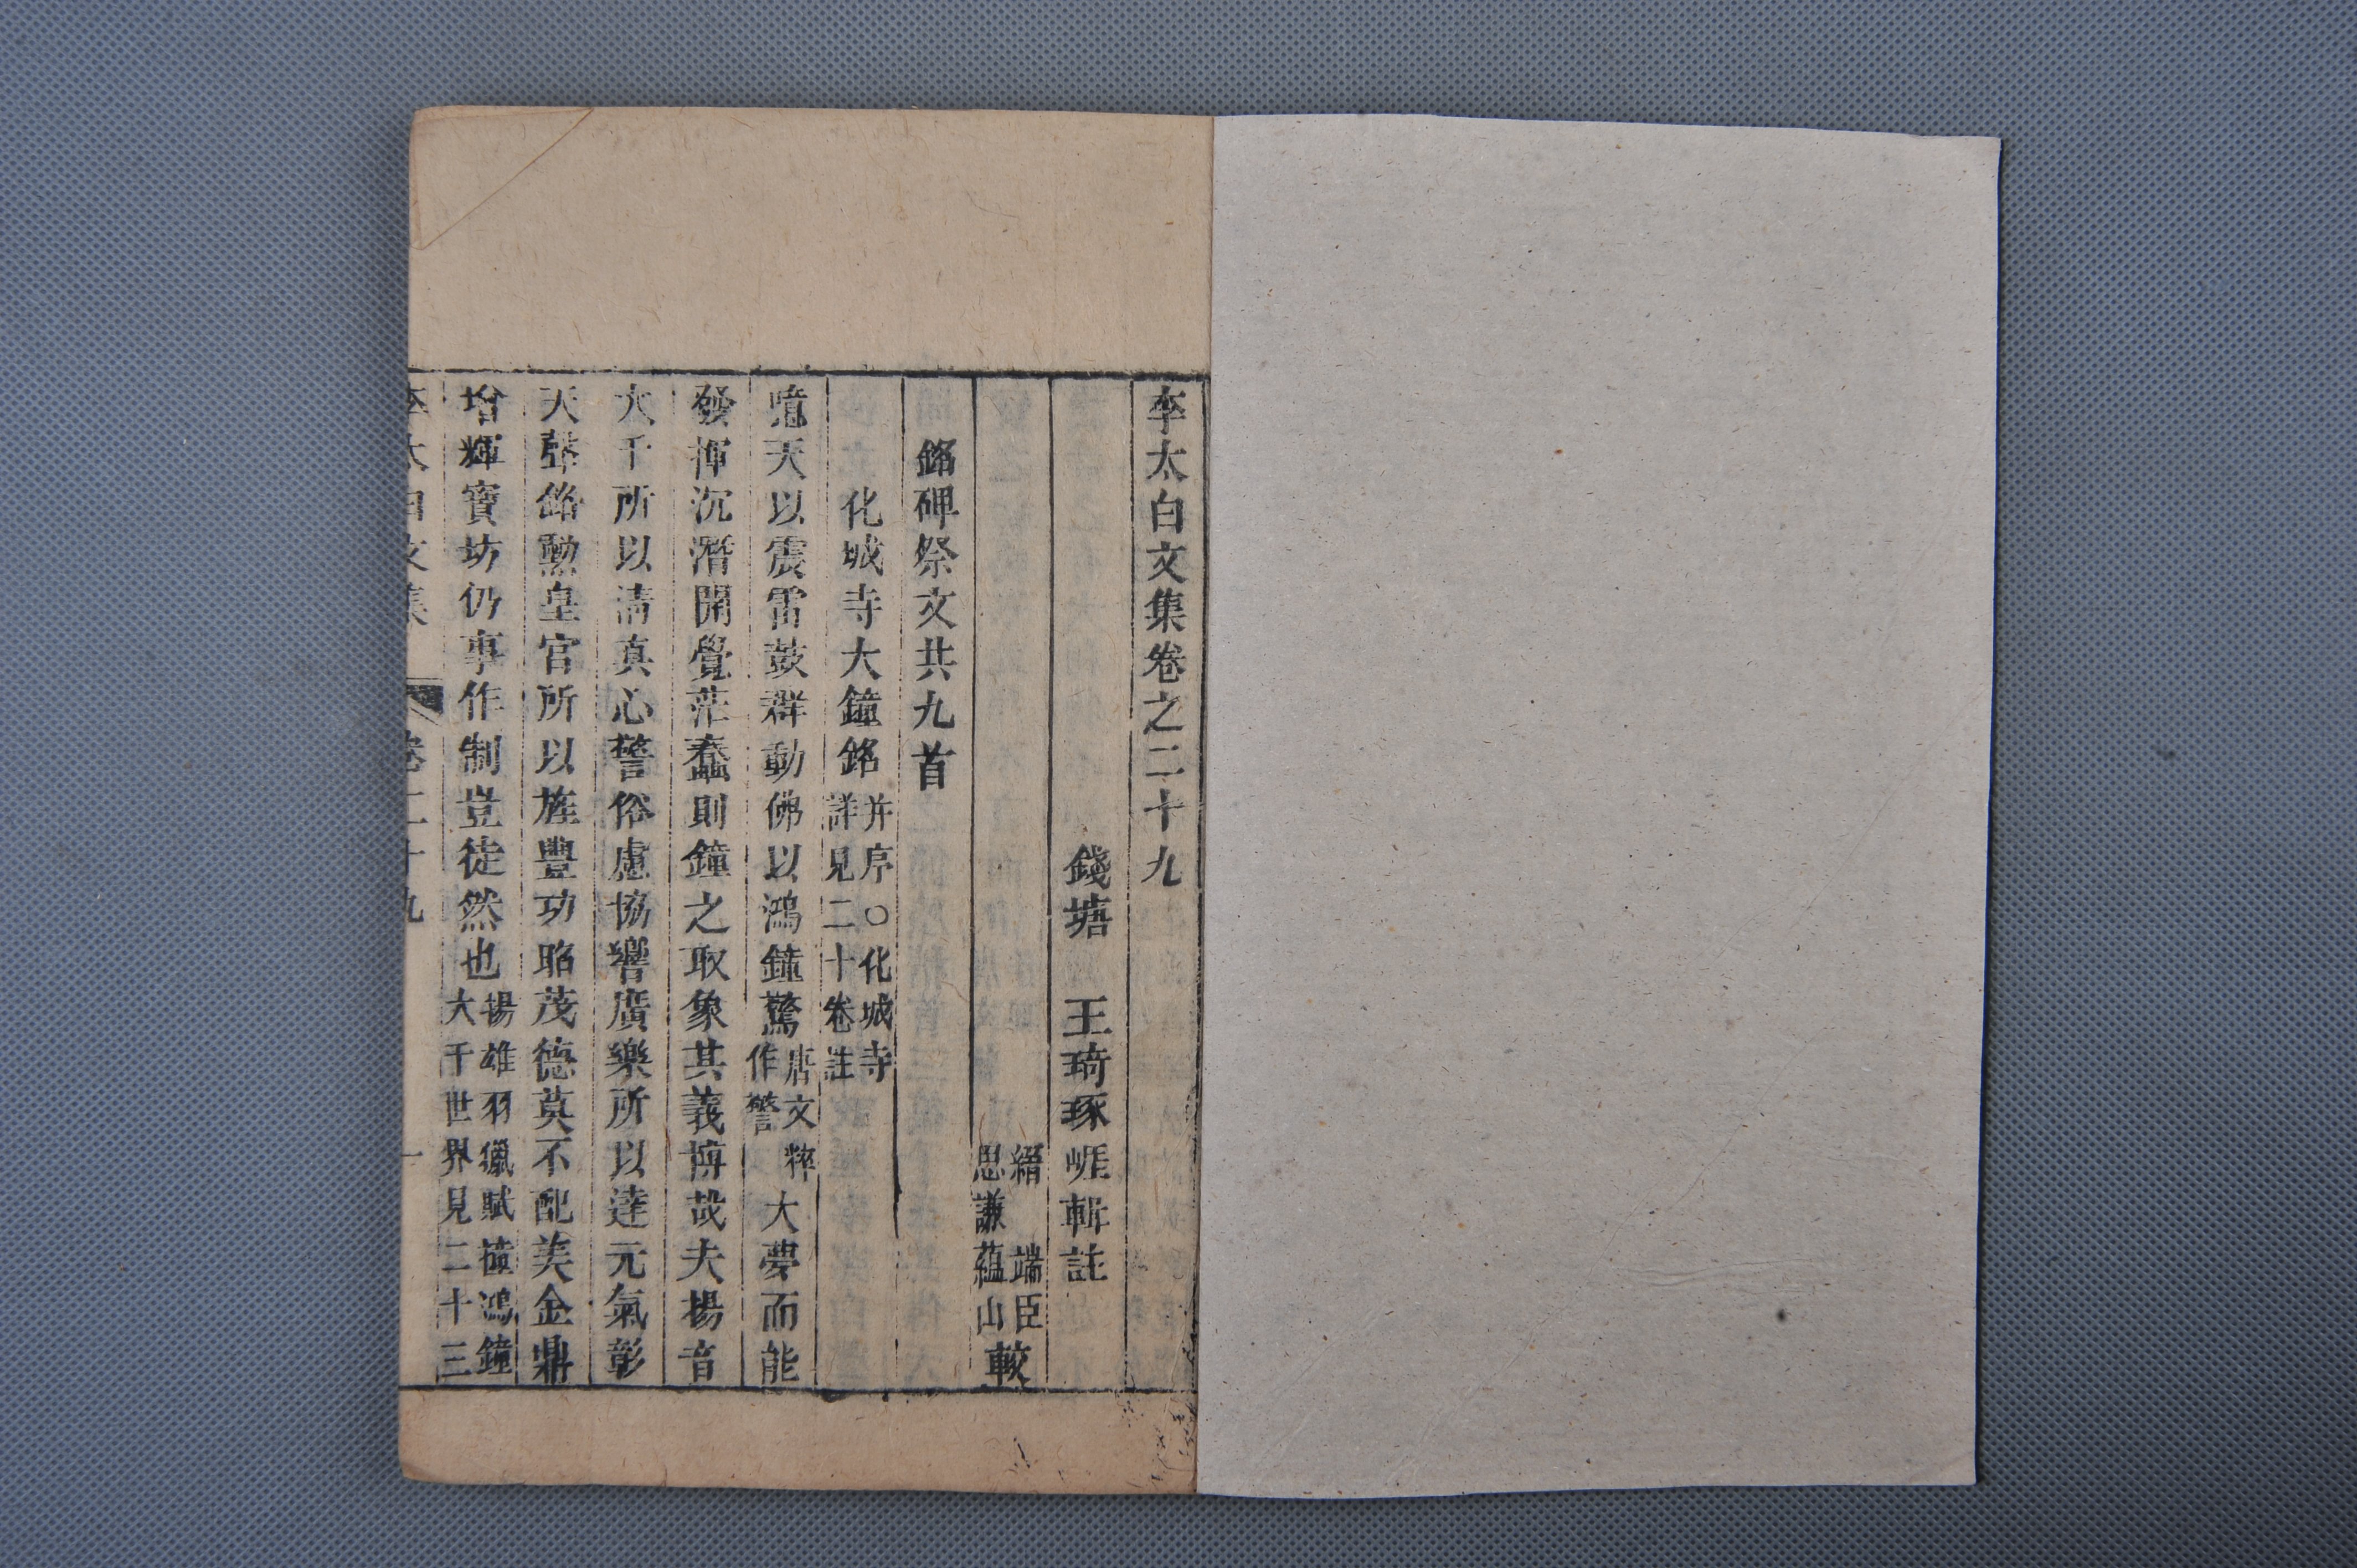 李太白文集卷之二十九
錢塘 王琦琢崖輯註
縉 端臣
思謙蘊山 較
銘碑祭文共九首
化城寺大鐘銘 并序○化城寺
詳見二十卷註
噫天以震雷鼓群動佛以鴻鐘驚 唐文粹
作警 大夢而能
發揮沉潛開覺茫蠢則鐘之取象其義博哉夫揚音
大千所以清真心警俗慮協響廣樂所以達元氣彰
天聲銘勳皇宮所以旌豐功昭茂德莫不配美金鼎
增輝寶坊仍事作制豈徒然也 揚雄羽獵賦撞鴻鐘
大千世界見二十三
李太白文集 卷二十九 一